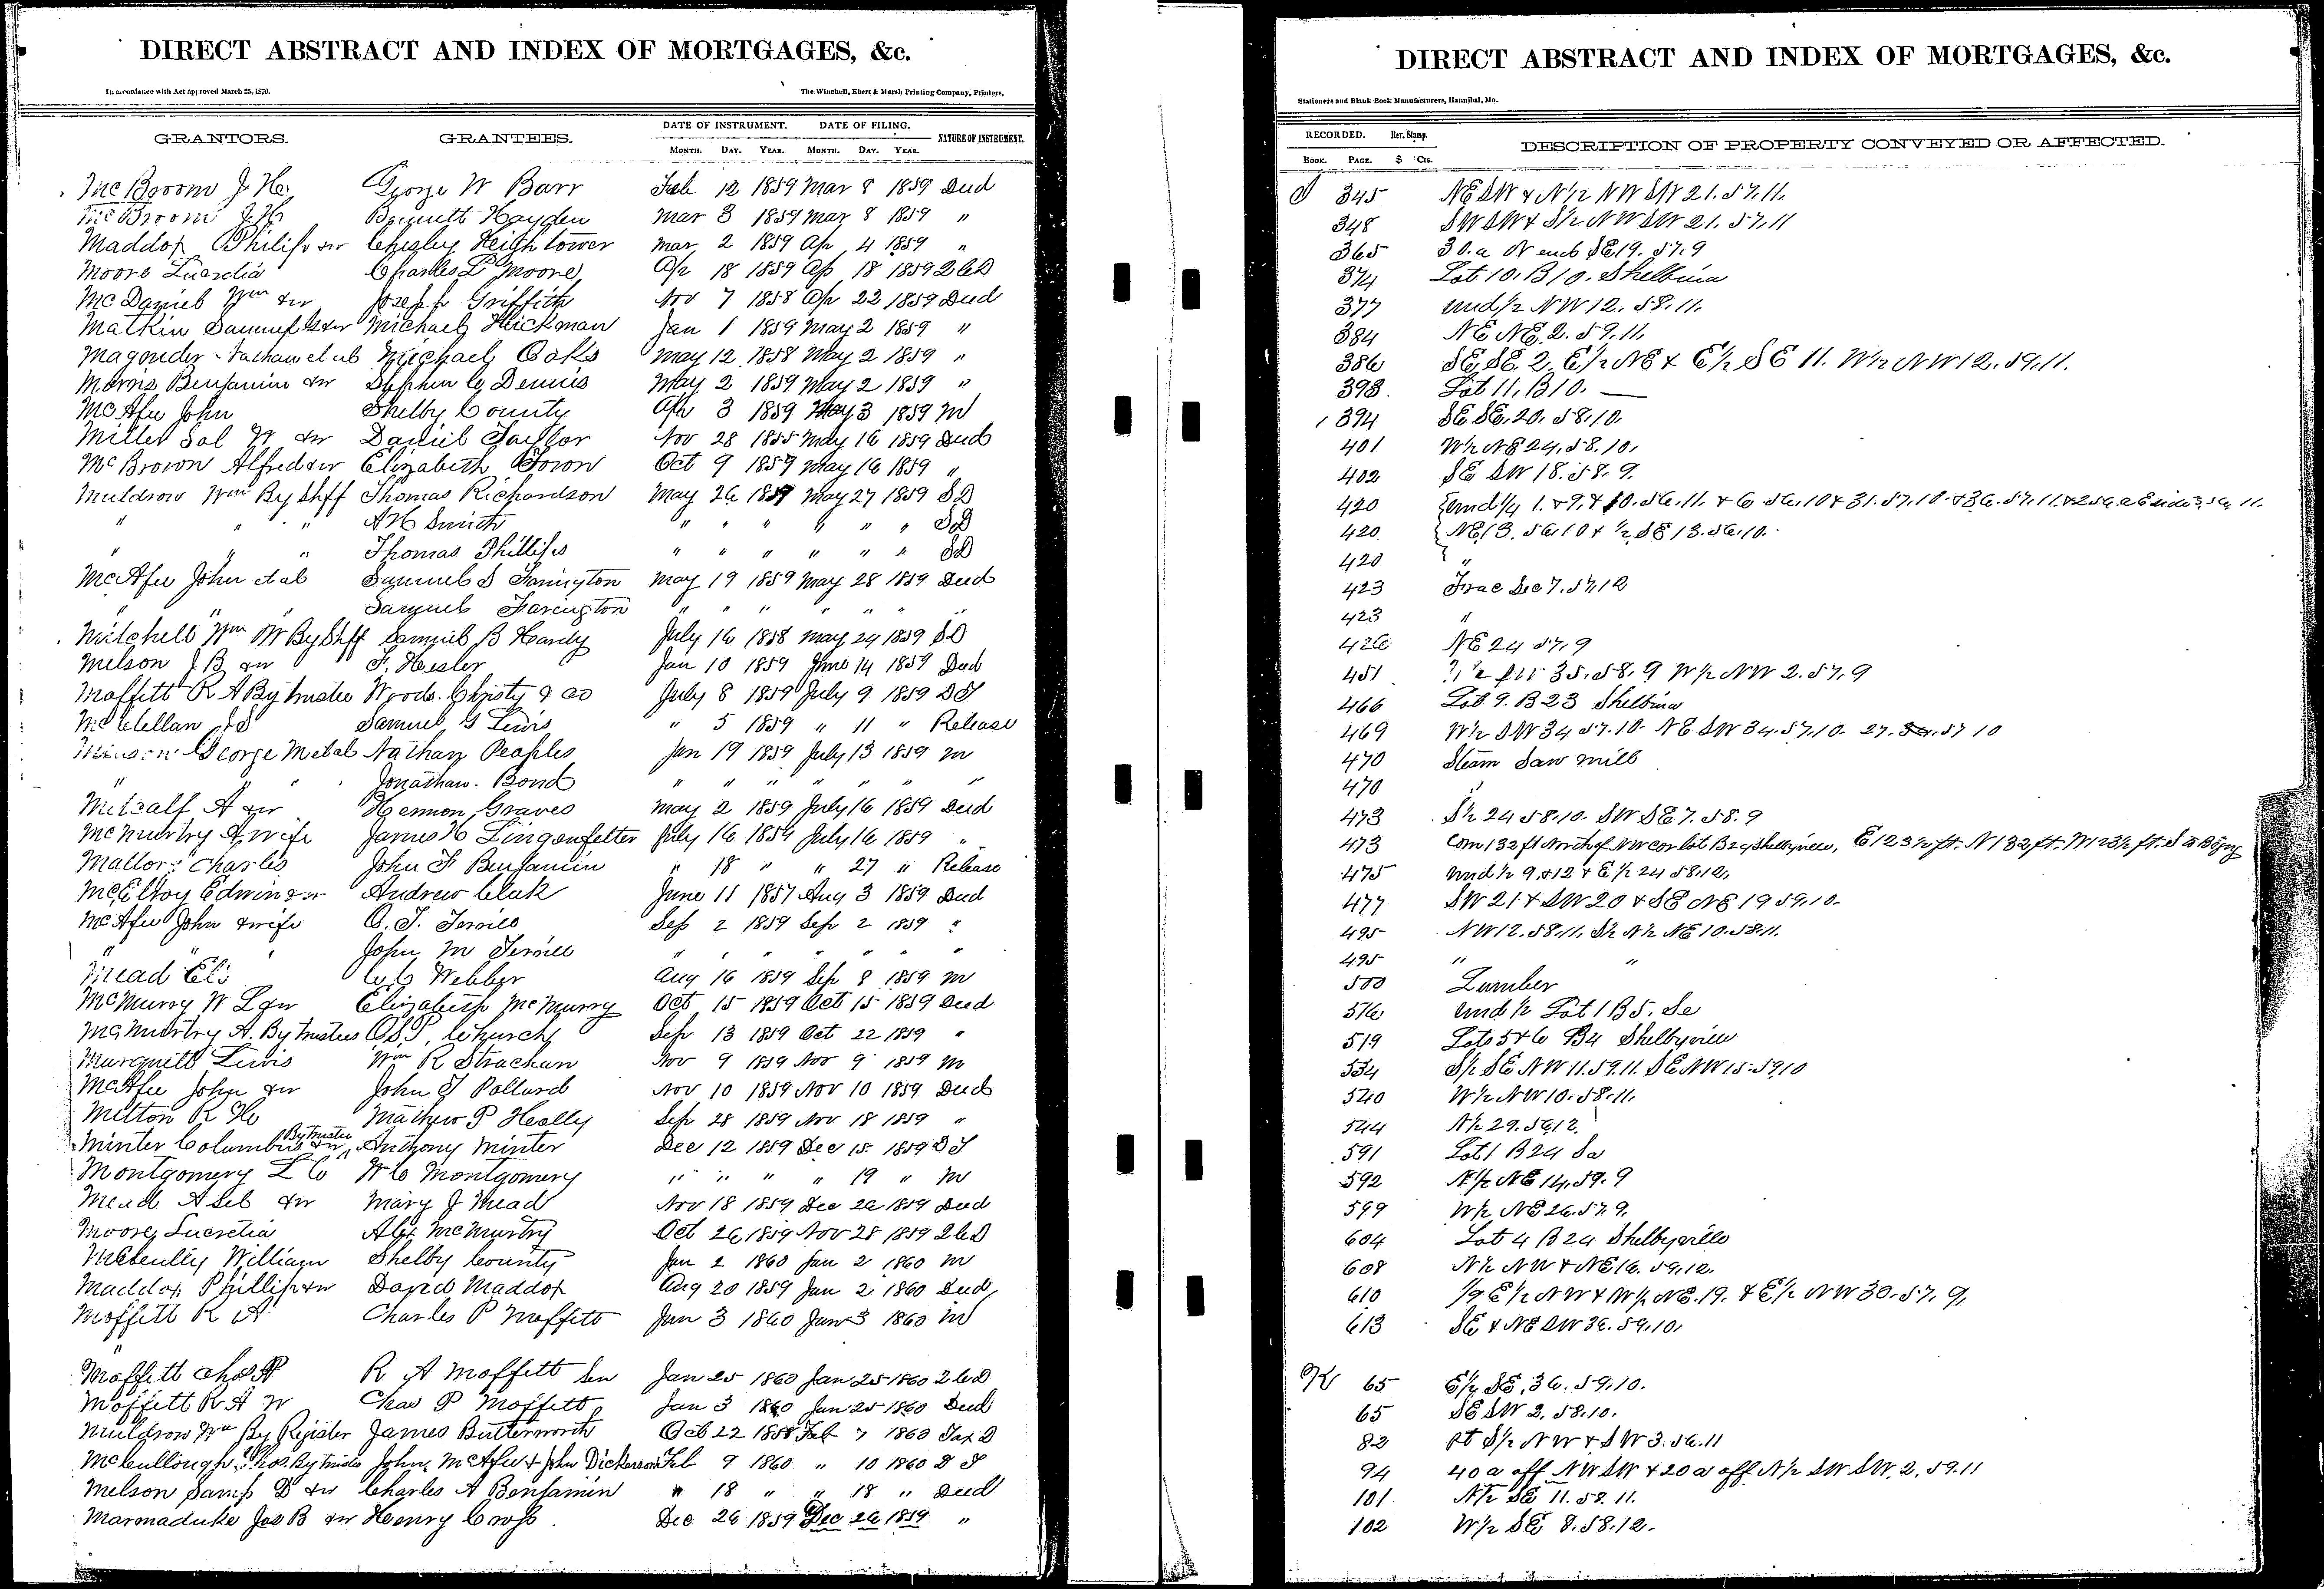 DIRECT ABSTRACT AND INDEX OF MORTGAGES, &c.
In accordance with Act approved March 25, 1870. The Winchell, Ebert & Marsh Printing Company, Printers,
GRANTORS. GRANTEES. DATE OF INSTRUMENT. DATE OF FILING. NATURE OF INSTRUMENT.
MONTH. DAY. YEAR. MONTH. DAY. YEAR.
McBroom J. H. George W Barr Feb 12 1859 Mar 8 1859 Deed
McBroom J. H. Bennett Hayden Mar 3 1859 Mar 8 1859 "
Maddox Philip & w Chesley Heightower Mar 2 1859 Ap 4 1859 "
Moore Lucretia Charles L Moore Ap 18 1859 Ap 18 1859 2 C D
McDaniel Wm & w Joseph Griffith Nov 7 1858 Ap 22 1859 Deed
Matkin Samuel & w Michael Hickman Jan 1 1859 May 2 1859 "
Magonder Nathan et al Michael Oaks May 12 1858 May 2 1859 "
Morris Benjamin & w Stephen C Dennis May 2 1859 May 2 1859 "
McAfee John Shelby County Ap 3 1859 May 3 1859 M
Miller Sol W & w Daniel Taylor Nov 28 1855 May 16 1859 Deed
McBrown Alfred & w Elizabeth Brown Oct 9 1857 May 16 1859 "
Muldrow Wm By Shff Thomas Richardson May 26 1859 May 27 1859 S D
" " " A H Smith " " " " " " S D
" " " Thomas Phillips " " " " " " S D
McAfee John et al Samuel S Farington May 19 1859 May 28 1859 Deed
" " Samuel Farington " " " " " " "
Mitchell Wm W By Shff Samuel B Hardy July 16 1858 May 29 1859 S D
Melson J. B & w F. Heisler Jan 10 1859 June 14 1859 Deed
Moffitt R A By trustee Woods. Christy & co July 8 1859 July 9 1859 D T
McClellan J S Samuel G Lewis " 5 1859 " 11 " Release
George M et al Nathan Peoples Jan 19 1859 July 13 1859 M
" " Jonathan. Bond " " " " " " "
Metcalf A & w Hermon Graves May 2 1859 July 16 1859 Deed
McMurtry A & wife James H Lingenfelter July 16 1859 July 16 1859 "
Mallory Charles John F Benjamin " 18 " " 27 " Release
McElroy Edwin & w Andrew Cluk June 11 1857 Aug 3 1859 Deed
McAfee John & wife O. T. Terrill Sep 2 1859 Sep 2 1859 "
" " John M Terrill " " " " " " "
Mead Eli Webber Aug 16 1859 Sep 8 1859 M
McMurry W L & w Elizabeth McMurry Oct 15 1859 Oct 15 1859 Deed
McMurtry A. By trustees Church Sep 13 1859 Oct 22 1859 "
Marquett Lewis Wm R Strachan Nov 9 1859 Nov 9 1859 M
McAfee John & w John T Pollard Nov 10 1859 Nov 10 1859 Deed
Melton R H Mathew P Heally Sep 28 1859 Nov 18 1859 "
Minter Columbus & w By trustee Anthony Minter Dec 12 1859 Dec 15 1859 D T
Montgomery L C W C Montgomery " " " " 19 " M
Mead Asel & w Mary J Mead Nov 18 1859 Dec 22 1859 Deed
Moore Lucretia Alex McMurtry Oct 26 1859 Nov 28 1859 2 C D
McCully William Shelby County Jan 2 1860 Jan 2 1860 M
Maddox Phillip & w David Maddox Aug 20 1859 Jan 2 1860 Deed
Moffett R A Charles P Moffett Jan 3 1860 Jan 3 1860 M
Moffett Chas P R A Moffett Sen Jan 25 1860 Jan 25 1860 2 C D
Moffett R A & w Chas P Moffett Jan 3 1860 Jan 25 1860 Deed
Muldrow Wm By Register James Butterworth Oct 22 1858 Feb 7 1860 Tax D
McCullough Thos. By Trustee John McAfee & John Dickerson Feb 9 1860 " 10 1860 D T
Melson Sam'l D & w Charles A Benjamin " 18 " " 18 " Deed
Marmaduke Jas B & w Henry Cross Dec 26 1859 Dec 26 1859 "
DIRECT ABSTRACT AND INDEX OF MORTGAGES, &c.
Stationers and Blank Book Manufacturers, Hannibal, Mo.
RECORDED. Rev. Stamp. DESCRIPTION OF PROPERTY CONVEYED OR AFFECTED.
BOOK. PAGE. $ CTS.
J 345 NE SW & N 1/2 NW SW 21. 57. 11.
348 SW SW & S 1/2 NW SW 21. 57. 11
365 30. a N end SE 19. 57. 9
374 Lot 10. B 10. Shelbina
377 und 1/2 NW 12. 58. 11.
384 NE NE 2. 59. 11.
386 SE SE 2. E 1/2 NE & E 1/2 SE 11. W 1/2 NW 12. 59. 11.
398. Lot 11, B 10. —
394 SE SE. 20. 58. 10.
401 W 1/2 NE 24. 58. 10.
402 SE SW 18. 58. 9.
420 und 1/4 1. & 9. & 10. 56. 11. & 6 56. 10 & 31. 57. 10. & 36. 57. 11.
420 NE 13. 56. 10 & 1/2 SE 13. 56. 10.
420 "
423 Frac Sec 7. 57. 12
423 "
426 NE 24 57. 9
451 35. 58. 9 W 1/2 NW 2. 57. 9
466 Lot 9. B 23 Shelbina
469 W 1/2 SW 34 57. 10. NE SW 34. 57. 10. 27. 57 10
470 Steam Saw mill
470 "
473 S 1/2 24 58. 10. SW SE 7. 58. 9
473 Com 132 ft North of NW cor lot B 24 Shelbyville, E 123 1/2 ft. N 132 ft. W 123 1/2 ft. S to Beg
475 und 1/2 9. & 12 & E 1/2 24 58. 12.
477 SW 21 & SW 20 & SE NE 19 59. 10.
495 NW 12. 58. 11. S 1/2 N 1/2 NE 10. 58. 11.
495 " "
500 Lumber
516 und 1/2 Lot 1 B 5. Se
519 Lots 5 & 6 B 4 Shelbyville
534 S 1/2 SE NW 11. 59. 11. SE NW 15. 59. 10
540 W 1/2 NW 10. 58. 11.
544 N 1/2 29. 56. 12.
591 Lot 1 B 24 Sa
592 N 1/2 NE 14. 59. 9
599 W 1/2 NE 26. 57. 9.
604 Lot 4 B 24 Shelbyville
608 N 1/2 NW & NE 16. 59. 12.
610 1/9 E 1/2 NW & W 1/2 NE. 19. & E 1/2 NW 30. 57. 9.
613 SE & NE SW 36. 59. 10.
K 65 E 1/2 SE. 36. 59. 10.
65 SE SW 2. 58. 10.
82 pt S 1/2 NW & SW 3. 56. 11
94 40 a off NW SW & 20 a off N 1/2 SW SW. 2. 59. 11
101 N 1/2 SE 11. 58. 11.
102 W 1/2 SE 8. 58. 12.